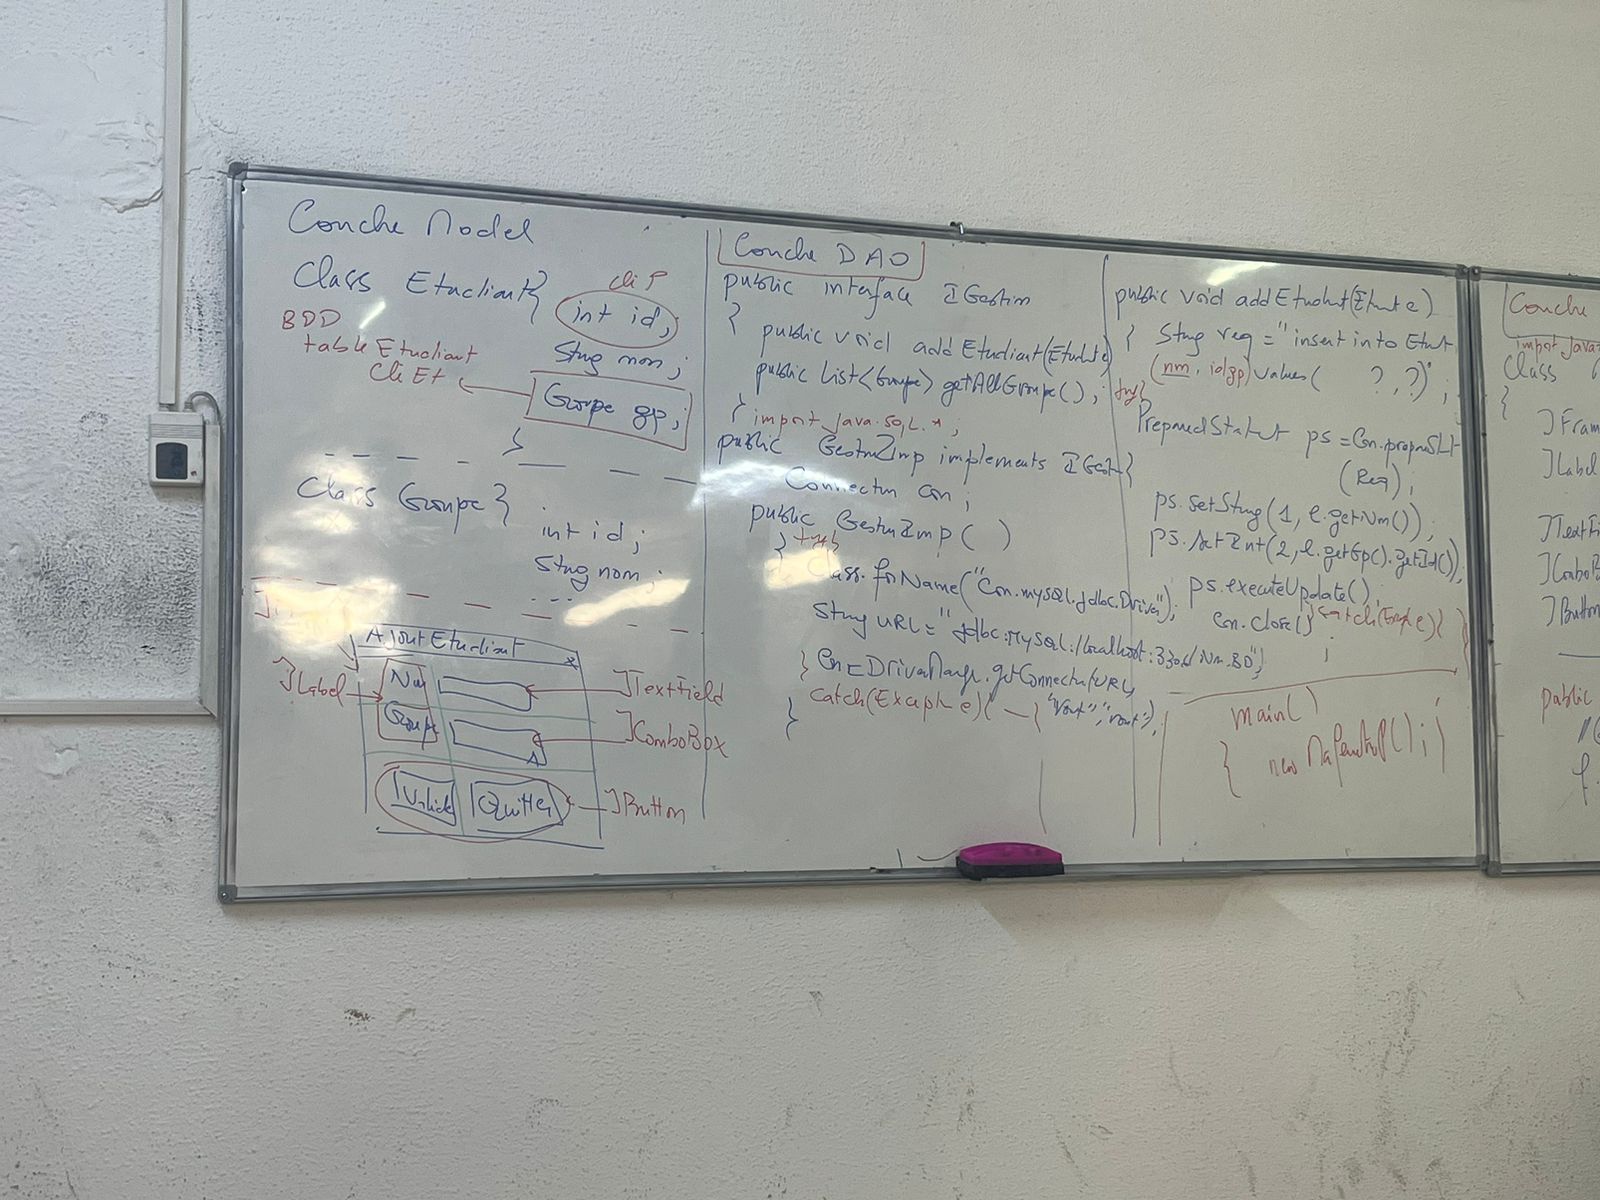 Couche Model
Class Etudiant{
clé P
int id;
BDD
table Etudiant
Clé Et
Stng nom;
Groupe gp;
}
Class Groupe{
int id;
Stng nom;
...
Ajout Etudiant
x
JLabel
Nom
JTextField
Groupe
JComboBox
Valider
Quitter
JButton
Couche DAO
public interface IGestion
{
public void addEtudiant(Etudiant e)
public List<Groupe> getAllGroupe();
}
import java.sql.*;
public GestnImp implements IGest{
Connectn con;
public GestnImp()
{ try{
Class.forName("Com.mysql.jdbc.Driver");
Stng URL="jdbc:mysql://localhost:3306/Nm.BD";
Con=DriverManager.getConnectn(URL,
"root","root");
}
catch(Except e){ — }
}
public void addEtudnt(Etnt e)
{ Stng req = "insert into Etnt
(nm, idgp) values( ?,?)";
try{
PreparedStatnt ps=Con.prepareSt
(Req);
ps.setStng(1, e.getNm());
ps.setInt(2, e.getGp().getId());
ps.executeUpdate();
Con.close();
} catch(Except e){ }
}
main()
{ new MaFenetreP(); }
Couche
import java
Class
{
JFram
JLabel
JTextFi
JComboB
JButton
public